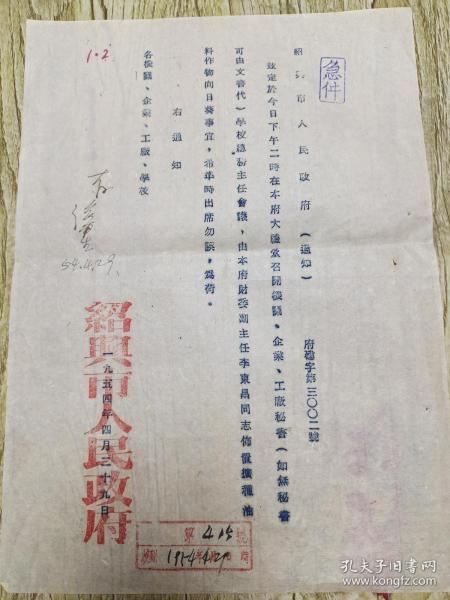 急件
紹興市人民政府（通知）
府秘字第三〇〇二號
茲定於今日下午二時在本府大禮堂召開機關、企業、工廠秘書（如無秘書
可由文書代）學校總務主任會議，由本府財委副主任李東昌同志佈置擴種油
料作物向日葵事宜，希準時出席勿誤，為荷。
右通知
各機關、企業、工廠、學校
紹興市人民政府
一九五四年四月二十九日
1.2
54.4.29
第415號
1954年4月29
孔夫子旧书网
book.kongfz.com